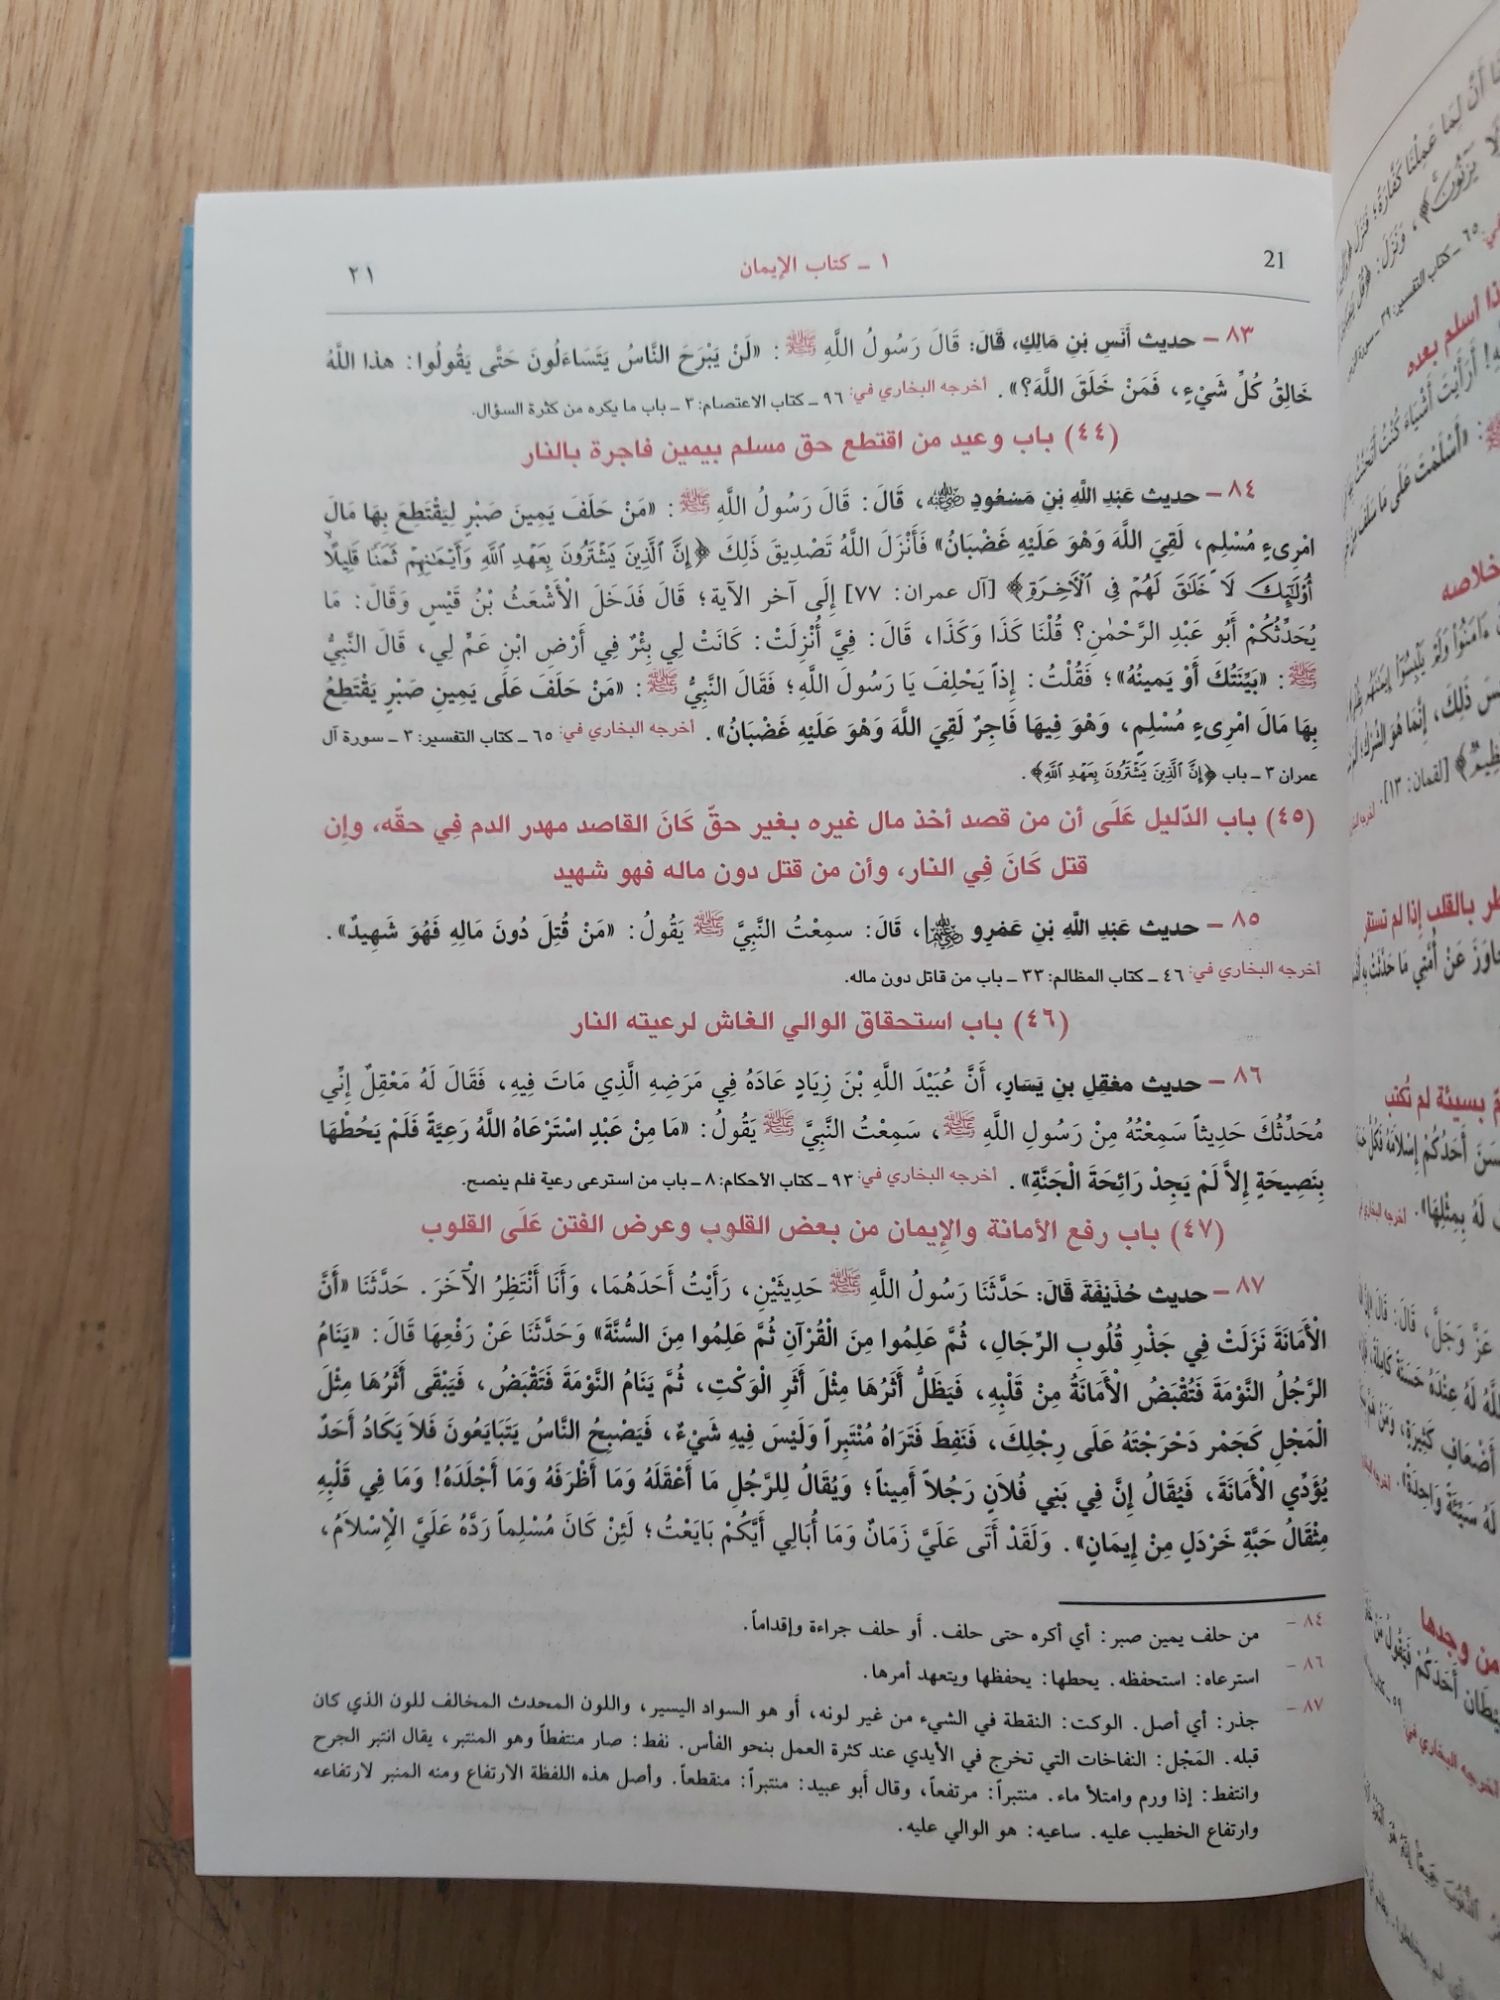 21
١ ـ كتاب الإيمان
٢١
٨٣ ـ حديث أَنَسِ بْنِ مَالِكٍ، قَالَ: قَالَ رَسُولُ اللَّهِ ﷺ: «لَنْ يَبْرَحَ النَّاسُ يَتَسَاءَلُونَ حَتَّى يَقُولُوا: هذا اللَّهُ
خَالِقُ كُلِّ شَيْءٍ، فَمَنْ خَلَقَ اللَّهَ؟». أخرجه البخاري في: ٩٦ ـ كتاب الاعتصام: ٣ ـ باب ما يكره من كثرة السؤال.
(٤٤) باب وعيد من اقتطع حق مسلم بيمين فاجرة بالنار
٨٤ ـ حديث عَبْدِ اللَّهِ بْنِ مَسْعُودٍ رضي الله عنه، قَالَ: قَالَ رَسُولُ اللَّهِ ﷺ: «مَنْ حَلَفَ يَمِينَ صَبْرٍ لِيَقْتَطِعَ بِهَا مَالَ
امْرِىءٍ مُسْلِمٍ، لَقِيَ اللَّهَ وَهُوَ عَلَيْهِ غَضْبَانُ» فَأَنْزَلَ اللَّهُ تَصْدِيقَ ذَلِكَ ﴿إِنَّ الَّذِينَ يَشْتَرُونَ بِعَهْدِ اللَّهِ وَأَيْمَٰنِهِمْ ثَمَنًا قَلِيلًا
أُوْلَٰٓئِكَ لَا خَلَٰقَ لَهُمْ فِي الْأَخِرَةِ﴾ [آل عمران: ٧٧] إِلَى آخر الآية؛ قَالَ فَدَخَلَ الْأَشْعَثُ بْنُ قَيْسٍ وَقَالَ: مَا
يُحَدِّثُكُمْ أَبُو عَبْدِ الرَّحْمٰنِ؟ قُلْنَا كَذَا وَكَذَا، قَالَ: فِيَّ أُنْزِلَتْ: كَانَتْ لِي بِئْرٌ فِي أَرْضِ ابْنِ عَمٍّ لِي، قَالَ النَّبِيُّ
ﷺ: «بَيِّنَتُكَ أَوْ يَمِينُهُ»؛ فَقُلْتُ: إِذاً يَحْلِفَ يَا رَسُولَ اللَّهِ؛ فَقَالَ النَّبِيُّ ﷺ: «مَنْ حَلَفَ عَلَى يَمِينِ صَبْرٍ يَقْتَطِعُ
بِهَا مَالَ امْرِىءٍ مُسْلِمٍ، وَهُوَ فِيهَا فَاجِرٌ لَقِيَ اللَّهَ وَهُوَ عَلَيْهِ غَضْبَانُ». أخرجه البخاري في: ٦٥ ـ كتاب التفسير: ٣ ـ سورة آل
عمران ٣ ـ باب ﴿إِنَّ الَّذِينَ يَشْتَرُونَ بِعَهْدِ اللَّهِ﴾.
(٤٥) باب الدّليل عَلَى أن من قصد أخذ مال غيره بغير حقّ كَانَ القاصد مهدر الدم فِي حقّه، وإن
قتل كَانَ فِي النار، وأن من قتل دون ماله فهو شهيد
٨٥ ـ حديث عَبْدِ اللَّهِ بْنِ عَمْرٍو رضي الله عنهما، قَالَ: سمِعْتُ النَّبِيَّ ﷺ يَقُولُ: «مَنْ قُتِلَ دُونَ مَالِهِ فَهُوَ شَهِيدٌ».
أخرجه البخاري في: ٤٦ ـ كتاب المظالم: ٣٣ ـ باب من قاتل دون ماله.
(٤٦) باب استحقاق الوالي الغاش لرعيته النار
٨٦ ـ حديث مَعْقِلِ بنِ يَسَارٍ، أَنَّ عُبَيْدَ اللَّهِ بْنَ زِيَادٍ عَادَهُ فِي مَرَضِهِ الَّذِي مَاتَ فِيهِ، فَقَالَ لَهُ مَعْقِلٌ إِنِّي
مُحَدِّثُكَ حَدِيثاً سَمِعْتُهُ مِنْ رَسُولِ اللَّهِ ﷺ، سَمِعْتُ النَّبِيَّ ﷺ يَقُولُ: «مَا مِنْ عَبْدٍ اسْتَرْعَاهُ اللَّهُ رَعِيَّةً فَلَمْ يَحُطْهَا
بِنَصِيحَةٍ إِلاَّ لَمْ يَجِدْ رَائِحَةَ الْجَنَّةِ». أخرجه البخاري في: ٩٣ ـ كتاب الأحكام: ٨ ـ باب من استرعى رعية فلم ينصح.
(٤٧) باب رفع الأمانة والإيمان من بعض القلوب وعرض الفتن عَلَى القلوب
٨٧ ـ حديث حُذَيْفَةَ قَالَ: حَدَّثَنَا رَسُولُ اللَّهِ ﷺ حَدِيثَيْنِ، رَأَيْتُ أَحَدَهُمَا، وَأَنَا أَنْتَظِرُ الْآخَرَ. حَدَّثَنَا «أَنَّ
الْأَمَانَةَ نَزَلَتْ فِي جَذْرِ قُلُوبِ الرِّجَالِ، ثُمَّ عَلِمُوا مِنَ الْقُرْآنِ ثُمَّ عَلِمُوا مِنَ السُّنَّةِ» وَحَدَّثَنَا عَنْ رَفْعِهَا قَالَ: «يَنَامُ
الرَّجُلُ النَّوْمَةَ فَتُقْبَضُ الْأَمَانَةُ مِنْ قَلْبِهِ، فَيَظَلُّ أَثَرُهَا مِثْلَ أَثَرِ الْوَكْتِ، ثُمَّ يَنَامُ النَّوْمَةَ فَتُقْبَضُ، فَيَبْقَى أَثَرُهَا مِثْلَ
الْمَجْلِ كَجَمْرٍ دَحْرَجْتَهُ عَلَى رِجْلِكَ، فَنَفِطَ فَتَرَاهُ مُنْتَبِراً وَلَيْسَ فِيهِ شَيْءٌ، فَيَصْبِحُ النَّاسُ يَتَبَايَعُونَ فَلاَ يَكَادُ أَحَدٌ
يُؤَدِّي الْأَمَانَةَ، فَيُقَالُ إِنَّ فِي بَنِي فُلاَنٍ رَجُلاً أَمِيناً؛ وَيُقَالُ لِلرَّجُلِ مَا أَعْقَلَهُ وَمَا أَظْرَفَهُ وَمَا أَجْلَدَهُ! وَمَا فِي قَلْبِهِ
مِثْقَالُ حَبَّةِ خَرْدَلٍ مِنْ إِيمَانٍ». وَلَقَدْ أَتَى عَلَيَّ زَمَانٌ وَمَا أُبَالِي أَيَّكُمْ بَايَعْتُ؛ لَئِنْ كَانَ مُسْلِماً رَدَّهُ عَلَيَّ الْإِسْلاَمُ،
٨٤ ـ من حلف يمين صبر: أي أكره حتى حلف. أو حلف جراءة وإقداماً.
٨٦ ـ استرعاه: استحفظه. يحطها: يحفظها ويتعهد أمرها.
٨٧ ـ جذر: أي أصل. الوكت: النقطة في الشيء من غير لونه، أو هو السواد اليسير، واللون المحدث المخالف للون الذي كان
قبله. المَجْل: النفاخات التي تخرج في الأيدي عند كثرة العمل بنحو الفأس. نفط: صار منتفطاً وهو المنتبر، يقال انتبر الجرح
وانتفط: إذا ورم وامتلأ ماء. منتبراً: مرتفعاً، وقال أبو عبيد: منتبراً: منقطعاً. وأصل هذه اللفظة الارتفاع ومنه المنبر لارتفاعه
وارتفاع الخطيب عليه. ساعيه: هو الوالي عليه.